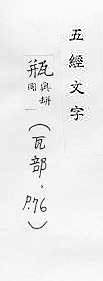 五經文字
瓶與缾同(瓦部,P.76)